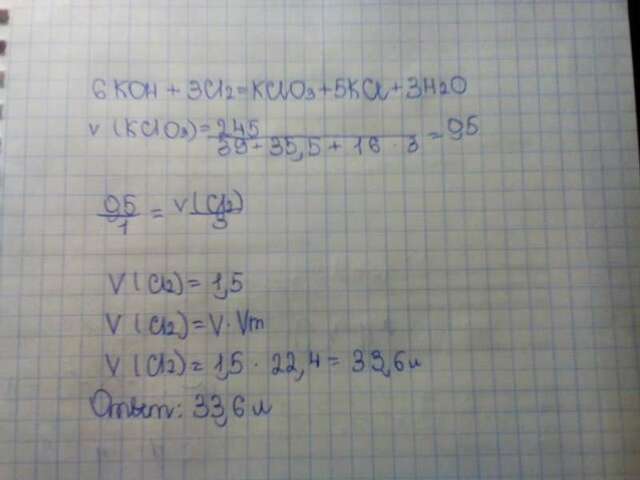 6KOH + 3Cl2=KClO3+5KCl+3H2O
ν(KClO3)=245
39+35,5+16·3=0,5
0,5/1=ν(Cl2)/3
ν(Cl2)=1,5
V(Cl2)=ν·Vm
V(Cl2)=1,5·22,4=33,6л
Ответ: 33,6л